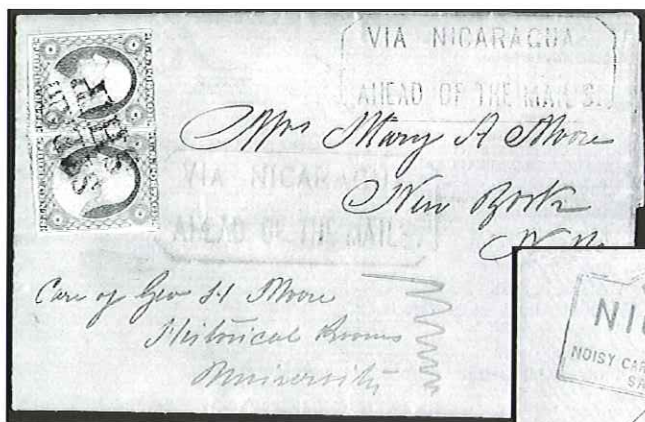 VIA NICARAGUA
AHEAD OF THE MAILS.
Mrs Mary A Moore
New York
N.Y.
VIA NICARAGUA
AHEAD OF THE MAILS.
Care of Geo H Moore
Historical Rooms
University
NI
NOISY CAR
SA